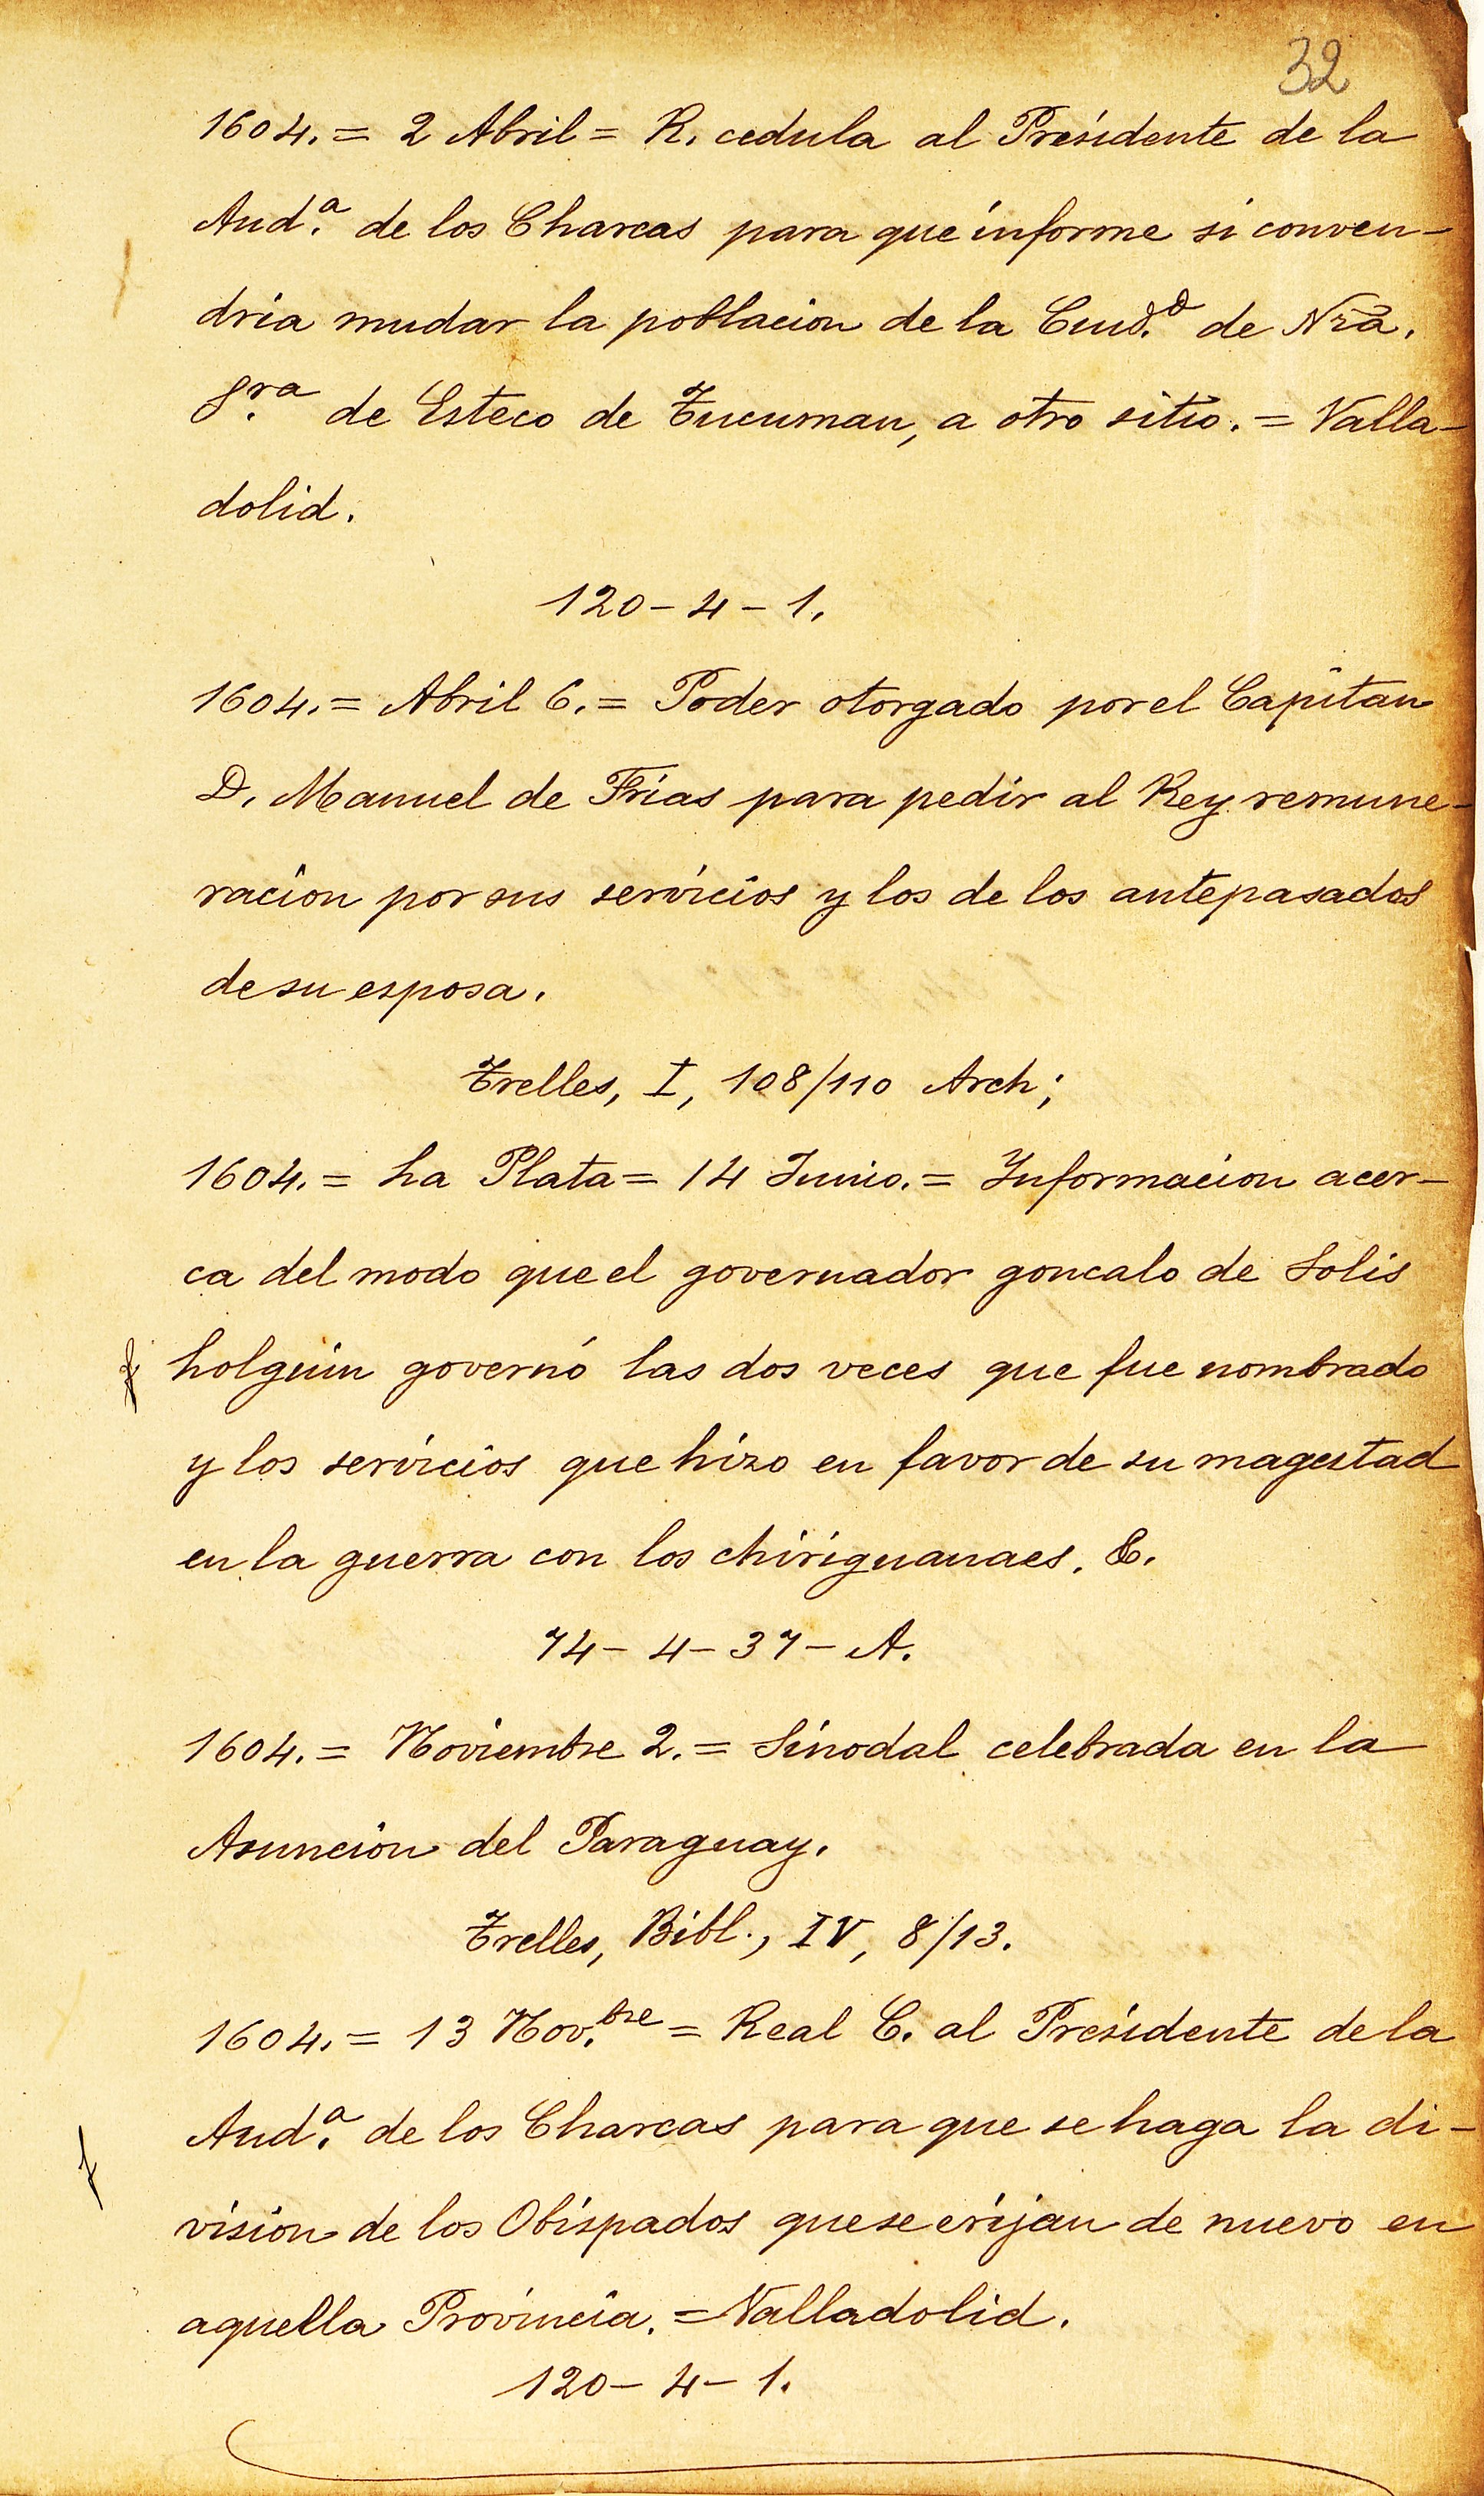 32
1604. = 2 Abril = R. cedula al Presidente de la
Aud.ª de los Charcas para que informe si conven-
dria mudar la poblacion de la Ciud.d de Nra.
Sra de Esteco de Tucuman, a otro sitio. = Valla-
dolid.
120-4-1.
1604. = Abril 6. = Poder otorgado por el Capitan
D. Manuel de Frias para pedir al Rey remune-
racion por sus servicios y los de los antepasados
de su esposa.
Trelles, I, 108/110 Arch;
1604. = La Plata = 14 Junio. = Informacion acer-
ca del modo que el governador goncalo de Solis
holguin governó las dos veces que fue nombrado
y los servicios que hizo en favor de su magestad
en la guerra con los chiriguanaes. &.
74-4-37-A.
1604. = Noviembre 2. = Sinodal celebrada en la
Asuncion del Paraguay.
Trelles, Bibl., IV, 8/13.
1604. = 13 Nov.bre = Real C. al Presidente de la
Aud.ª de los Charcas para que se haga la di-
vision de los Obispados que se erijan de nuevo en
aquella Provincia. = Valladolid.
120-4-1.